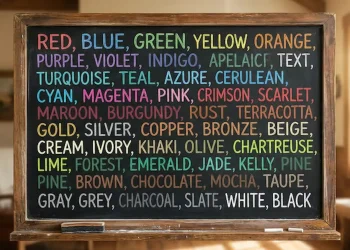 RED, BLUE, GREEN, YELLOW, ORANGE,
PURPLE, VIOLET, INDIGO, APELAICF, TEXT,
TURQUOISE, TEAL, AZURE, CERULEAN,
CYAN, MAGENTA, PINK, CRIMSON, SCARLET,
MAROON, BURGUNDY, RUST, TERRACOTTA,
GOLD, SILVER, COPPER, BRONZE, BEIGE,
CREAM, IVORY, KHAKI, OLIVE, CHARTREUSE,
LIME, FOREST, EMERALD, JADE, KELLY, PINE
PINE, BROWN, CHOCOLATE, MOCHA, TAUPE,
GRAY, GREY, CHARCOAL, SLATE, WHITE, BLACK